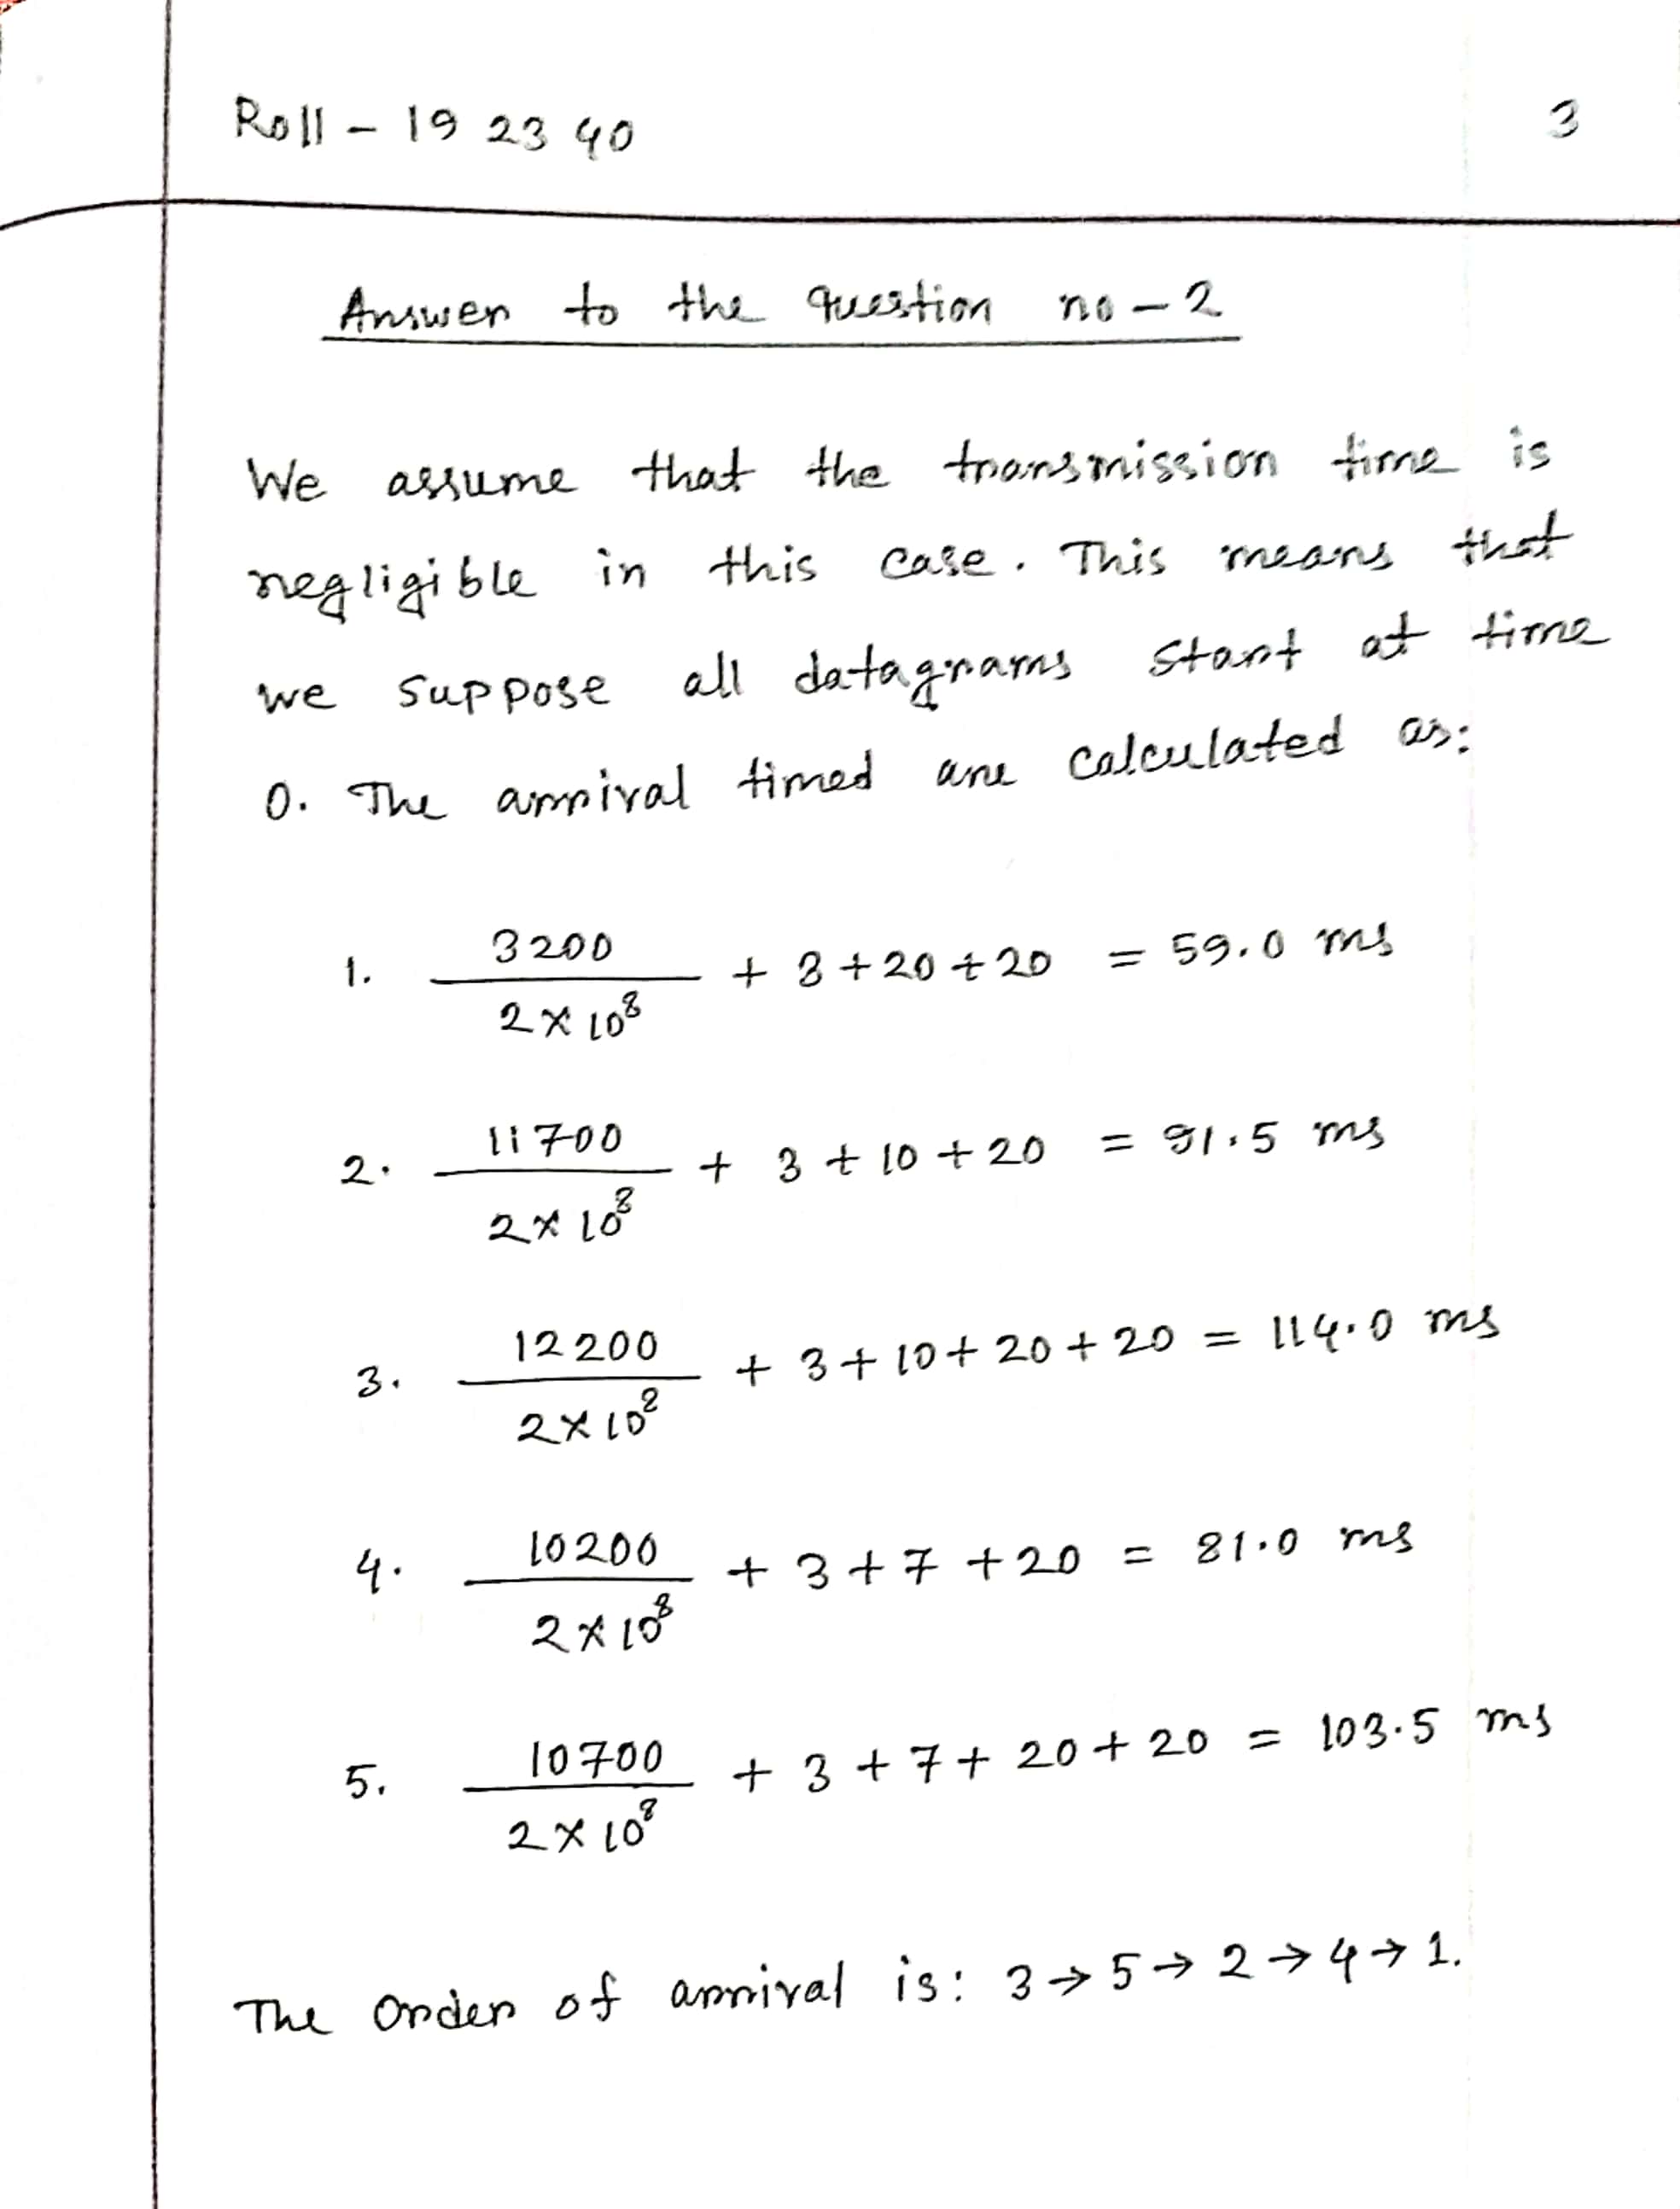 Roll - 19 23 40
3
Answer to the question no - 2
We assume that the transmission time is
negligible in this case. This means that
we suppose all datagrams start at time
0. The arrival timed are calculated as:
1. 3200 / 2 × 10^8 + 3 + 20 + 20 = 59.0 ms
2. 11700 / 2 × 10^8 + 3 + 10 + 20 = 91.5 ms
3. 12200 / 2 × 10^8 + 3 + 10 + 20 + 20 = 114.0 ms
4. 10200 / 2 × 10^8 + 3 + 7 + 20 = 81.0 ms
5. 10700 / 2 × 10^8 + 3 + 7 + 20 + 20 = 103.5 ms
The order of arrival is: 3 → 5 → 2 → 4 → 1.